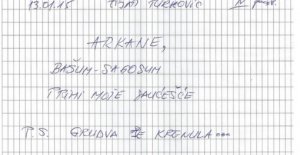 13.01.15 TURKOVIĆ
ARKANE,
BAŠUM-SAGOSUM
PRIMI MOJE SAUČEŠĆE
P.S. GRUDVA JE KRENULA...